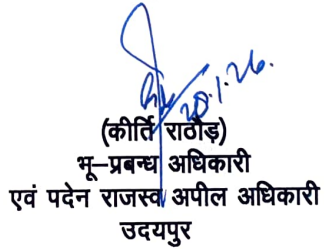 28.1.26.
(कीर्ति राठौड़)
भू–प्रबन्ध अधिकारी
एवं पदेन राजस्व अपील अधिकारी
उदयपुर